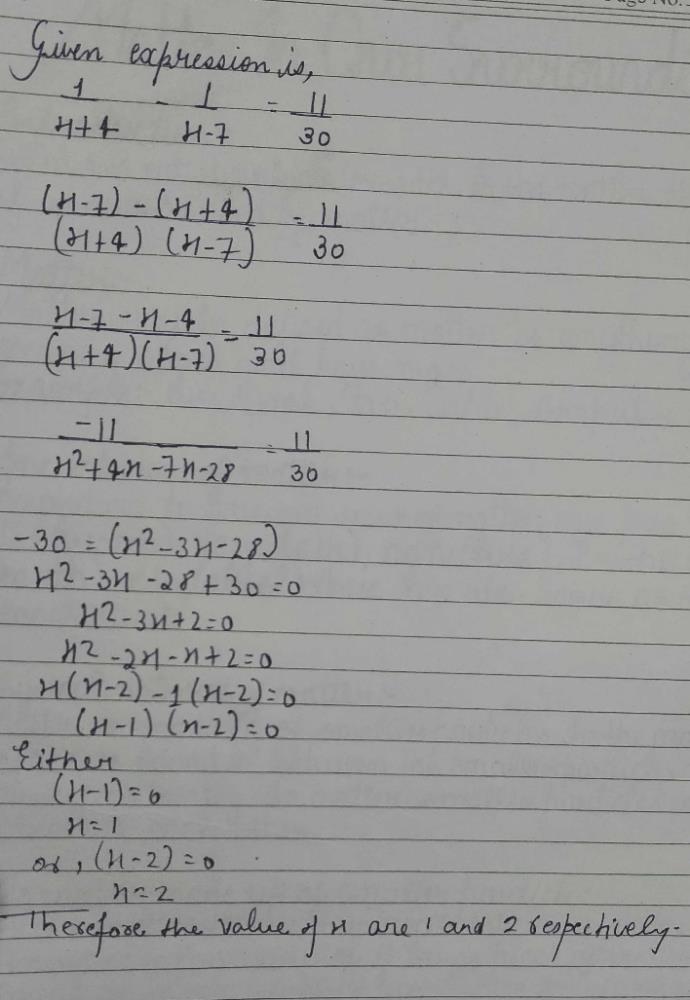 Given expression is,
1/(x+4) - 1/(x-7) = 11/30
((x-7) - (x+4))/((x+4) (x-7)) = 11/30
(x-7-x-4)/((x+4)(x-7)) = 11/30
-11/(x²+4x-7x-28) = 11/30
-30 = (x²-3x-28)
x²-3x-28+30=0
x²-3x+2=0
x²-2x-x+2=0
x(x-2)-1(x-2)=0
(x-1)(x-2)=0
Either
(x-1)=0
x=1
or, (x-2)=0
x=2
Therefore the value of x are 1 and 2 respectively.